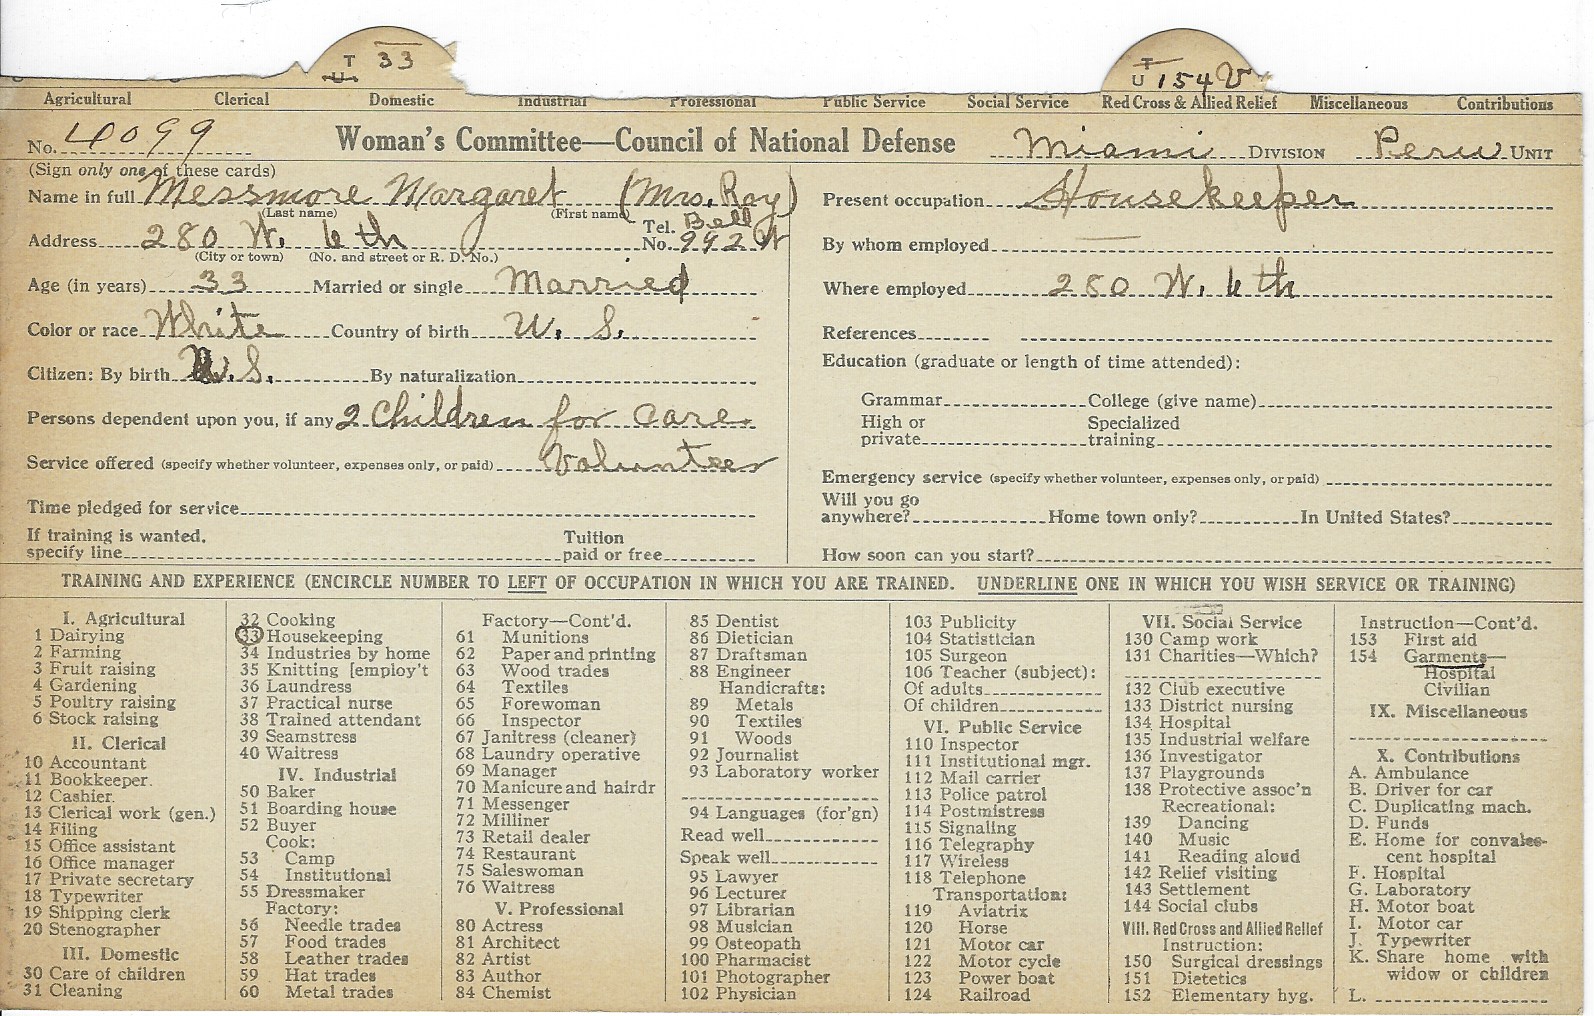 T 33 T 154 V
U U
Agricultural Clerical Domestic Industrial Professional Public Service Social Service Red Cross & Allied Relief Miscellaneous Contributions
No. 4099 Woman's Committee—Council of National Defense Miami DIVISION Peru UNIT
(Sign only one of these cards)
Name in full Messmore Margaret (Mrs. Ray)
(Last name) (First name)
Address 280 W. 6th Tel. No. Bell 992 W
(City or town) (No. and street or R. D. No.)
Age (in years) 33 Married or single Married
Color or race White Country of birth U. S.
Citizen: By birth U. S. By naturalization
Persons dependent upon you, if any 2 Children for care
Service offered (specify whether volunteer, expenses only, or paid) Volunteer
Time pledged for service
If training is wanted. Tuition
specify line paid or free
Present occupation Housekeeper
By whom employed —
Where employed 280 W. 6th
References
Education (graduate or length of time attended):
Grammar College (give name)
High or Specialized
private training
Emergency service (specify whether volunteer, expenses only, or paid)
Will you go
anywhere? Home town only? In United States?
How soon can you start?
TRAINING AND EXPERIENCE (ENCIRCLE NUMBER TO LEFT OF OCCUPATION IN WHICH YOU ARE TRAINED. UNDERLINE ONE IN WHICH YOU WISH SERVICE OR TRAINING)
I. Agricultural
1 Dairying
2 Farming
3 Fruit raising
4 Gardening
5 Poultry raising
6 Stock raising
II. Clerical
10 Accountant
11 Bookkeeper.
12 Cashier.
13 Clerical work (gen.)
14 Filing
15 Office assistant
16 Office manager
17 Private secretary
18 Typewriter
19 Shipping clerk
20 Stenographer
III. Domestic
30 Care of children
31 Cleaning
32 Cooking
33 Housekeeping
34 Industries by home
35 Knitting [employ't
36 Laundress
37 Practical nurse
38 Trained attendant
39 Seamstress
40 Waitress
IV. Industrial
50 Baker
51 Boarding house
52 Buyer
Cook:
53 Camp
54 Institutional
55 Dressmaker
Factory:
56 Needle trades
57 Food trades
58 Leather trades
59 Hat trades
60 Metal trades
Factory—Cont'd.
61 Munitions
62 Paper and printing
63 Wood trades
64 Textiles
65 Forewoman
66 Inspector
67 Janitress (cleaner)
68 Laundry operative
69 Manager
70 Manicure and hairdr
71 Messenger
72 Milliner
73 Retail dealer
74 Restaurant
75 Saleswoman
76 Waitress
V. Professional
80 Actress
81 Architect
82 Artist
83 Author
84 Chemist
85 Dentist
86 Dietician
87 Draftsman
88 Engineer
Handicrafts:
89 Metals
90 Textiles
91 Woods
92 Journalist
93 Laboratory worker
94 Languages (for'gn)
Read well
Speak well
95 Lawyer
96 Lecturer
97 Librarian
98 Musician
99 Osteopath
100 Pharmacist
101 Photographer
102 Physician
103 Publicity
104 Statistician
105 Surgeon
106 Teacher (subject):
Of adults
Of children
VI. Public Service
110 Inspector
111 Institutional mgr.
112 Mail carrier
113 Police patrol
114 Postmistress
115 Signaling
116 Telegraphy
117 Wireless
118 Telephone
Transportation:
119 Aviatrix
120 Horse
121 Motor car
122 Motor cycle
123 Power boat
124 Railroad
VII. Social Service
130 Camp work
131 Charities—Which?
132 Club executive
133 District nursing
134 Hospital
135 Industrial welfare
136 Investigator
137 Playgrounds
138 Protective assoc'n
Recreational:
139 Dancing
140 Music
141 Reading aloud
142 Relief visiting
143 Settlement
144 Social clubs
VIII. Red Cross and Allied Relief
Instruction:
150 Surgical dressings
151 Dietetics
152 Elementary hyg.
Instruction—Cont'd.
153 First aid
154 Garments—
Hospital
Civilian
IX. Miscellaneous
X. Contributions
A. Ambulance
B. Driver for car
C. Duplicating mach.
D. Funds
E. Home for convales-
cent hospital
F. Hospital
G. Laboratory
H. Motor boat
I. Motor car
J. Typewriter
K. Share home with
widow or children
L.